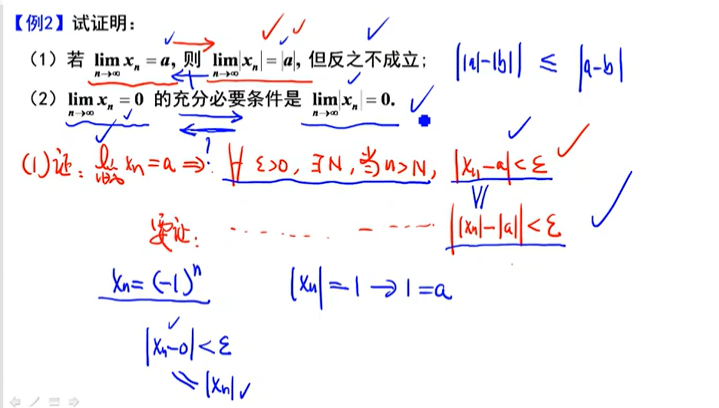 【例2】试证明:
(1) 若 lim_{n→∞} x_n = a, 则 lim_{n→∞} |x_n| = |a|, 但反之不成立;
||a|-|b|| ≤ |a-b|
(2) lim_{n→∞} x_n = 0 的充分必要条件是 lim_{n→∞} |x_n| = 0.
(1)证: lim_{n→∞} x_n = a ⇒: ∀ ε>0, ∃N, 当 n>N, |x_n-a|<ε
要证: ||x_n|-|a||<ε
x_n = (-1)^n |x_n| = 1 → 1 = a
|x_n-0|<ε
= |x_n|